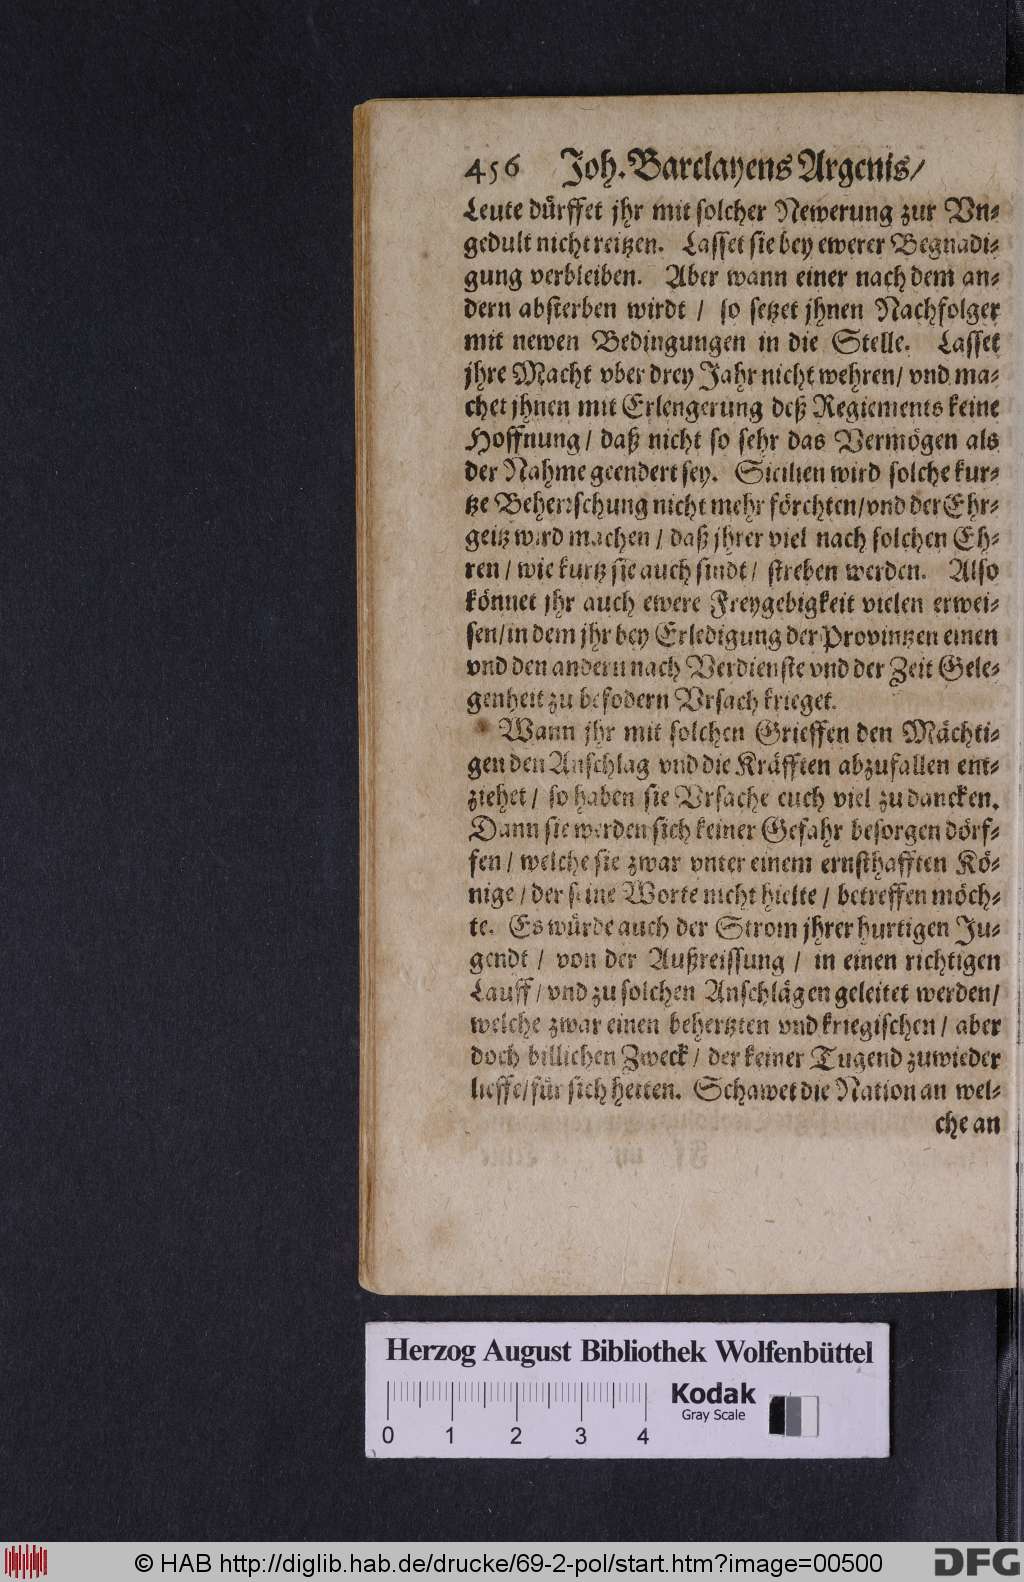 456 Joh. Barclayens Argenis/
Leute dürffet jhr mit solcher Newerung zur Vn-
gedult nicht reitzen. Lasset sie bey ewerer Begnadi-
gung verbleiben. Aber wann einer nach dem an-
dern absterben wirdt / so setzet jhnen Nachfolger
mit newen Bedingungen in die Stelle. Lasset
jhre Macht vber drey Jahr nicht wehren/ vnd ma-
chet jhnen mit Erlengerung deß Regiements keine
Hoffnung/ daß nicht so sehr das Vermögen als
der Nahme geendert sey. Sicilien wird solche kur-
tze Beherrschung nicht mehr förchten/vnd der Ehr-
geitz wird machen / daß jhrer viel nach solchen Eh-
ren / wie kurtz sie auch sindt / streben werden. Also
könnet jhr auch ewere Freygebigkeit vielen erwei-
sen/in dem jhr bey Erledigung der Provintzen einen
vnd den andern nach Verdienste vnd der Zeit Gele-
genheit zu befodern Vrsach krieget.
Wann jhr mit solchen Grieffen den Mächti-
gen den Anschlag vnd die Kräfften abzufallen ent-
ziehet / so haben sie Vrsache euch viel zu dancken.
Dann sie werden sich keiner Gefahr besorgen dörf-
fen / welche sie zwar vnter einem ernsthafften Kö-
nige / der seine Worte nicht hielte / betreffen möch-
te. Es würde auch der Strom jhrer hurtigen Ju-
gendt / von der Außreissung / in einen richtigen
Lauff / vnd zu solchen Anschlägen geleitet werden/
welche zwar einen behertzten vnd kriegischen / aber
doch billichen Zweck / der keiner Tugend zuwieder
lieffe/für sich hetten. Schawet die Nation an wel-
che an
Herzog August Bibliothek Wolfenbüttel
Kodak
Gray Scale
0 1 2 3 4
© HAB http://diglib.hab.de/drucke/69-2-pol/start.htm?image=00500
DFG